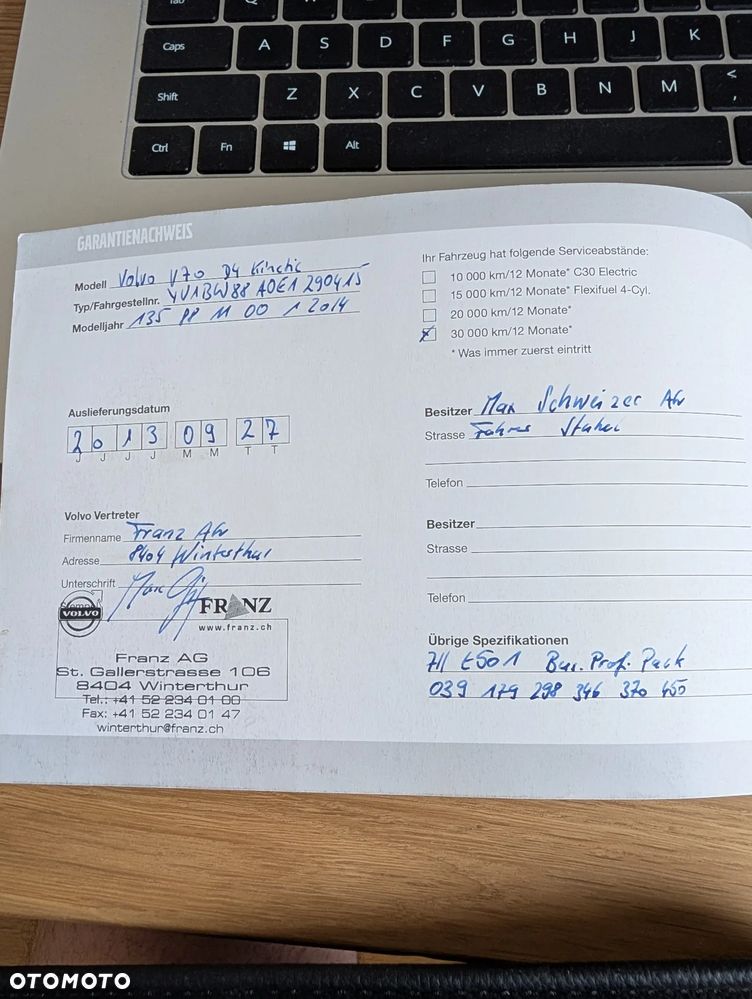 Tab
Caps A S D F G H J K
Shift Z X C V B N M < ,
Ctrl Fn Alt
GARANTIENACHWEIS
Modell Volvo V70 D4 Kinetic
Typ/Fahrgestellnr. YV1BW88A0E1290415
Modelljahr 135 PP M 00 1 2014
Auslieferungsdatum
2 0 1 3 0 9 2 7
J J J J M M T T
Volvo Vertreter
Firmenname Franz AG
Adresse 8404 Winterthur
Unterschrift
Stempel
VOLVO
FRANZ
www.franz.ch
Franz AG
St. Gallerstrasse 106
8404 Winterthur
Tel.: +41 52 234 01 00
Fax: +41 52 234 01 47
winterthur@franz.ch
Ihr Fahrzeug hat folgende Serviceabstände:
10 000 km/12 Monate* C30 Electric
15 000 km/12 Monate* Flexifuel 4-Cyl.
20 000 km/12 Monate*
x 30 000 km/12 Monate*
* Was immer zuerst eintritt
Besitzer Max Schweizer AG
Strasse
Telefon
Besitzer
Strasse
Telefon
Übrige Spezifikationen
711 E501 Bus. Prof. Pack
039 179 298 346 370 450
OTOMOTO